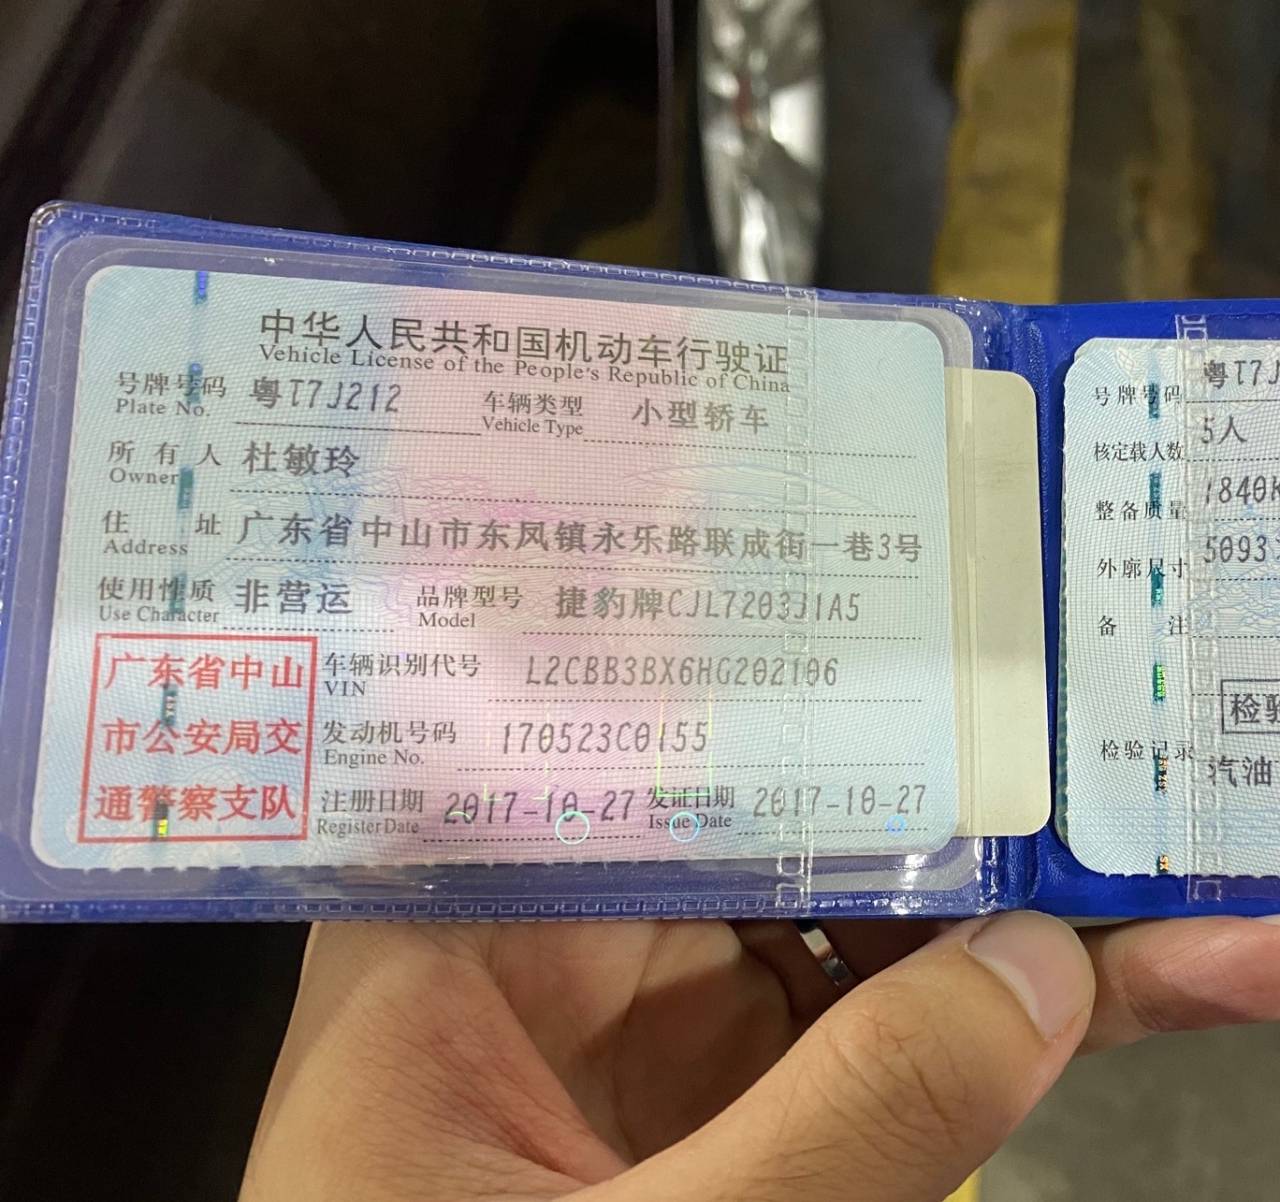 中华人民共和国机动车行驶证
Vehicle License of the People's Republic of China
号牌号码 粤T7J212 车辆类型 小型轿车
Plate No. Vehicle Type
所有人 杜敏玲
Owner
住址 广东省中山市东凤镇永乐路联成街一巷3号
Address
使用性质 非营运 品牌型号 捷豹牌CJL7203J1A5
Use Character Model
广东省中山
市公安局交
通警察支队
车辆识别代号 L2CBB3BX6HG202106
VIN
发动机号码 170523C0155
Engine No.
注册日期 2017-10-27 发证日期 2017-10-27
Register Date Issue Date
号牌号码 粤T7J
核定载人数 5人
整备质量 1840
外廓尺寸 5093
备注
检验
检验记录 汽油